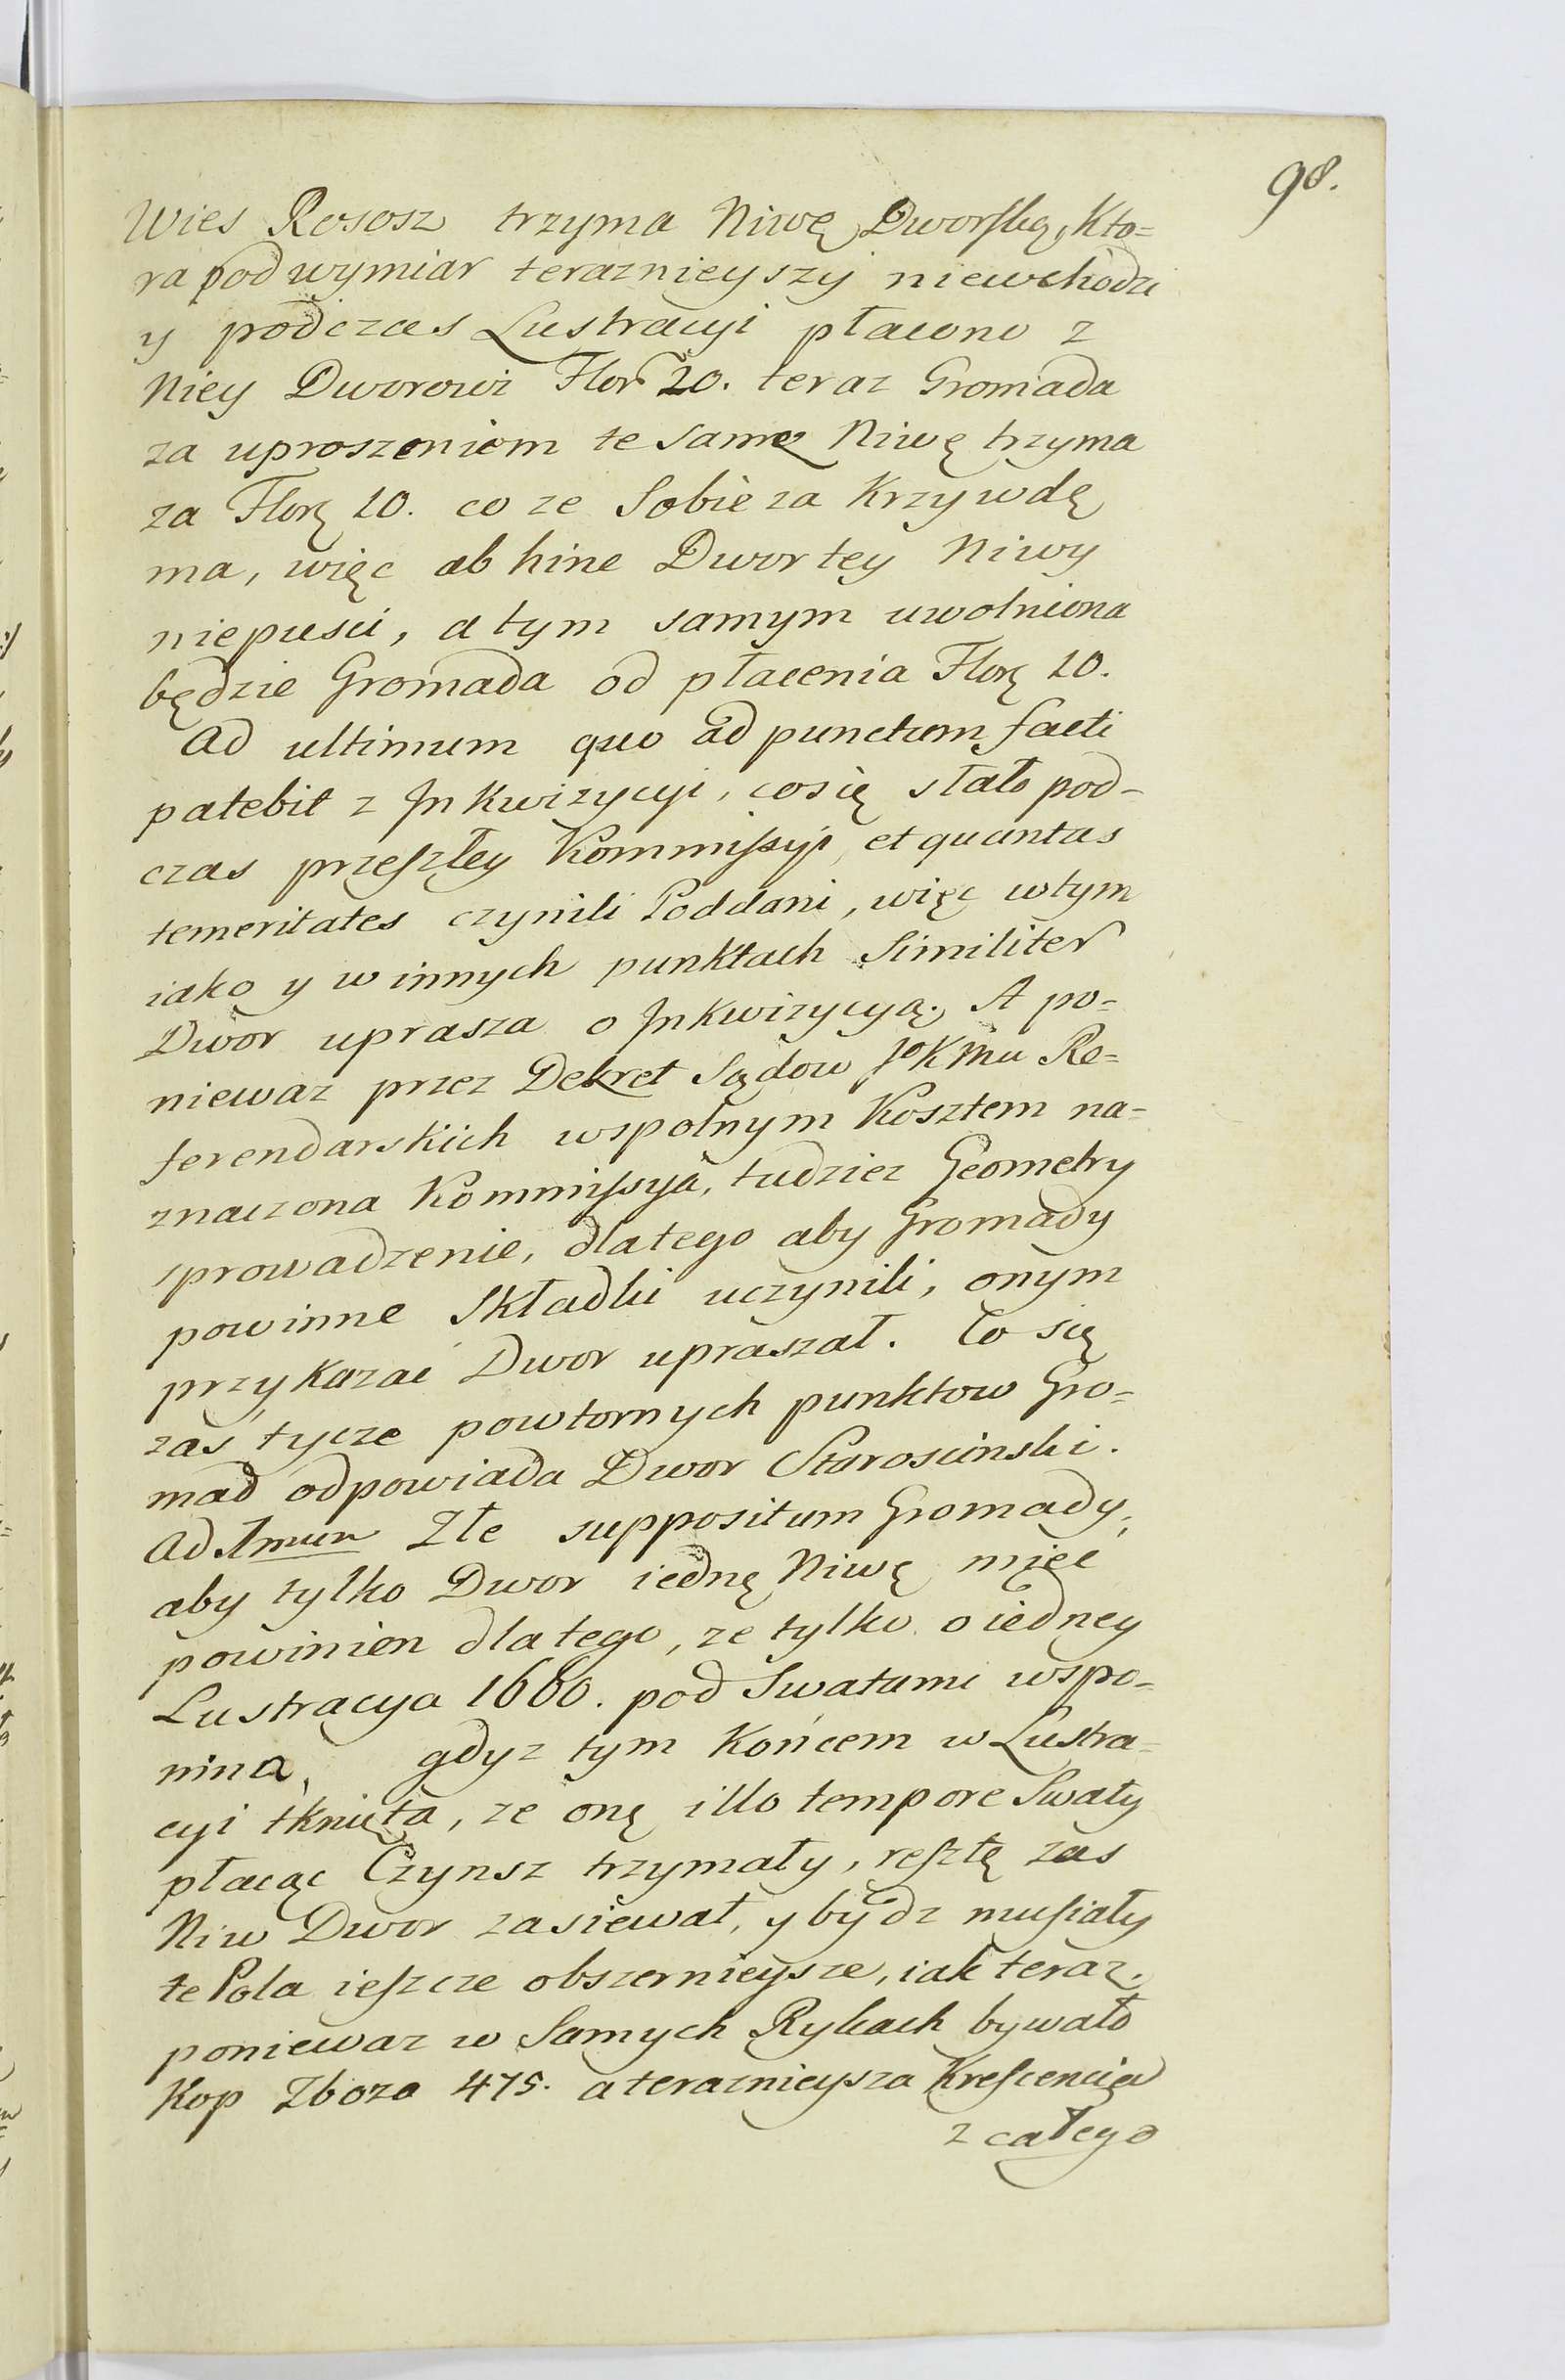 98.
Wies Rososz trzyma Niwę Dworską, Kto=
ra pod wymiar teraznieyszy niewchodzi
y podczas Lustracyi płacono z
Niey Dworowi Flor 20. teraz Gromada
za uproszeniem te samę Niwę trzyma
za Florę 10. co ze Sobie za Krzywdę
ma, więc ab hinc Dwor tey Niwy
niepusci, a tym samym uwolniona
będzie Gromada od płacenia Florę 10.
Ad ultimum quo ad punctum facti
patebit z Inkwizycyi, cosię stało pod-
czas przeszłey Kommissyi, et quantas
temeritates czynili Poddani, więc wtym
iako y w innych punktach Similiter
Dwor uprasza o Inkwizycyą. A po=
niewaz przez Dekret Sądow JoKMci Re=
ferendarskich wspolnym Kosztem na-
znaczona Kommissya, tudziez Geometry
sprowadzenie, dlatego aby Gromady
powinne Składki uczynili, onym
przykazać Dwor upraszał. Co się
zaś tycze powtornych punktow Gro=
mad odpowiada Dwor Starosciński.
Ad 1mum Złe suppositum Gromady,
aby tylko Dwor iednę Niwę mięć
powinien dlatego, ze tylko o iedney
Lustracya 1660. pod Swatami wspo-
nina, gdyz tym Końcem w Lustra-
cyi tknięta, ze onę illo tempore Swaty
płacąc Czynsz trzymały, resztę zas
Niw Dwor zasiewał, y bydz musiały
te Pola ieszcze obszernieysze, iak teraz.
poniewaz w Samych Rykach bywało
Kop Zboza 475. a teraznieysza Krescencia
z całego